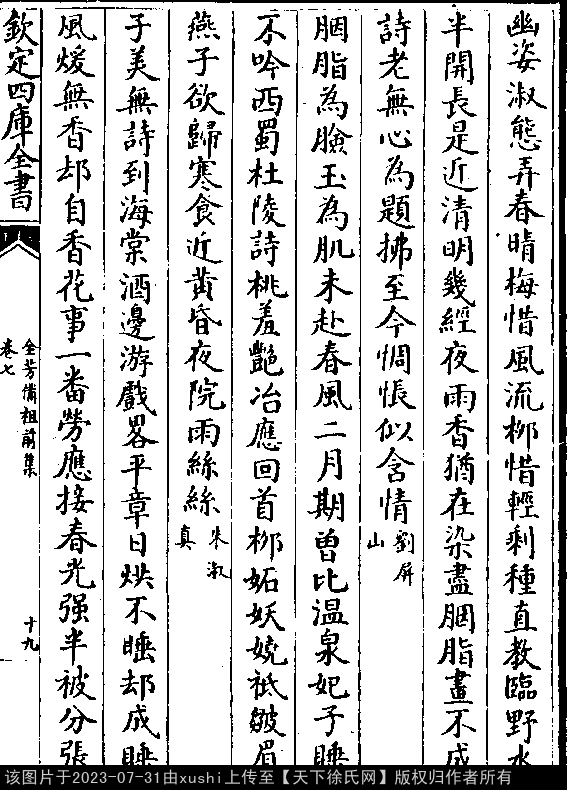 幽姿淑態弄春晴梅惜風流栁惜輕剰種直教臨野水
半開長是近清明幾經夜雨香猶在染盡胭脂畫不成
詩老無心為題拂至今惆悵似含情劉屏山
胭脂為臉玉為肌未赴春風二月期曽比温泉妃子睡
不吟西蜀杜陵詩桃羞艶冶應回首栁妬妖嬈祗皺眉
燕子欲歸寒食近黄昏夜院雨絲絲朱淑真
子美無詩到海棠酒邊游戲畧平章日烘不睡却成睡
風煖無香却自香花事一畨勞應接春光强半被分張
欽定四庫全書
全芳備祖前集
卷七
十九
该图片于2023-07-31由xushi上传至【天下徐氏网】版权归作者所有